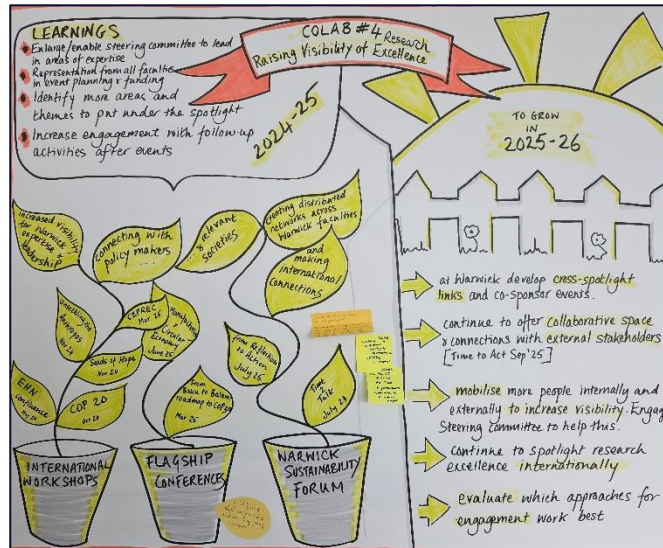 COLAB #4 Research
Raising Visibility of Excellence
LEARNINGS
Enlarge/enable steering committee to lead
in areas of expertise
Representation from all faculties
in event planning & funding
Identify more areas and
themes to put under the spotlight
Increase engagement with follow-up
activities after events
2024-25
TO GROW
IN
2025-26
increased visibility
for Warwick
expertise &
leadership
connecting with
policy makers
...& relevant
societies
creating distributed
networks across
Warwick faculties
and
making
international
connections
Nov 24
CEPREC
Mar 25
Circular
Economy
June 25
Seeds of Hope
Nov 24
EHN
Confluence
COP 20
from
Baku to Belem
roadmap to
Mar 25
from Reflection
to Action
July 25
Time
2
Talk
INTERNATIONAL
WORKSHOPS
FLAGSHIP
CONFERENCES
WARWICK
SUSTAINABILITY
FORUM
at Warwick develop cross-spotlight
links and co-sponsor events.
continue to offer collaborative space
& connections with external stakeholders
[Time to Act Sep'25]
mobilise more people internally and
externally to increase visibility. Engage
Steering committee to help this.
continue to spotlight research
excellence internationally
evaluate which approaches for
engagement work best